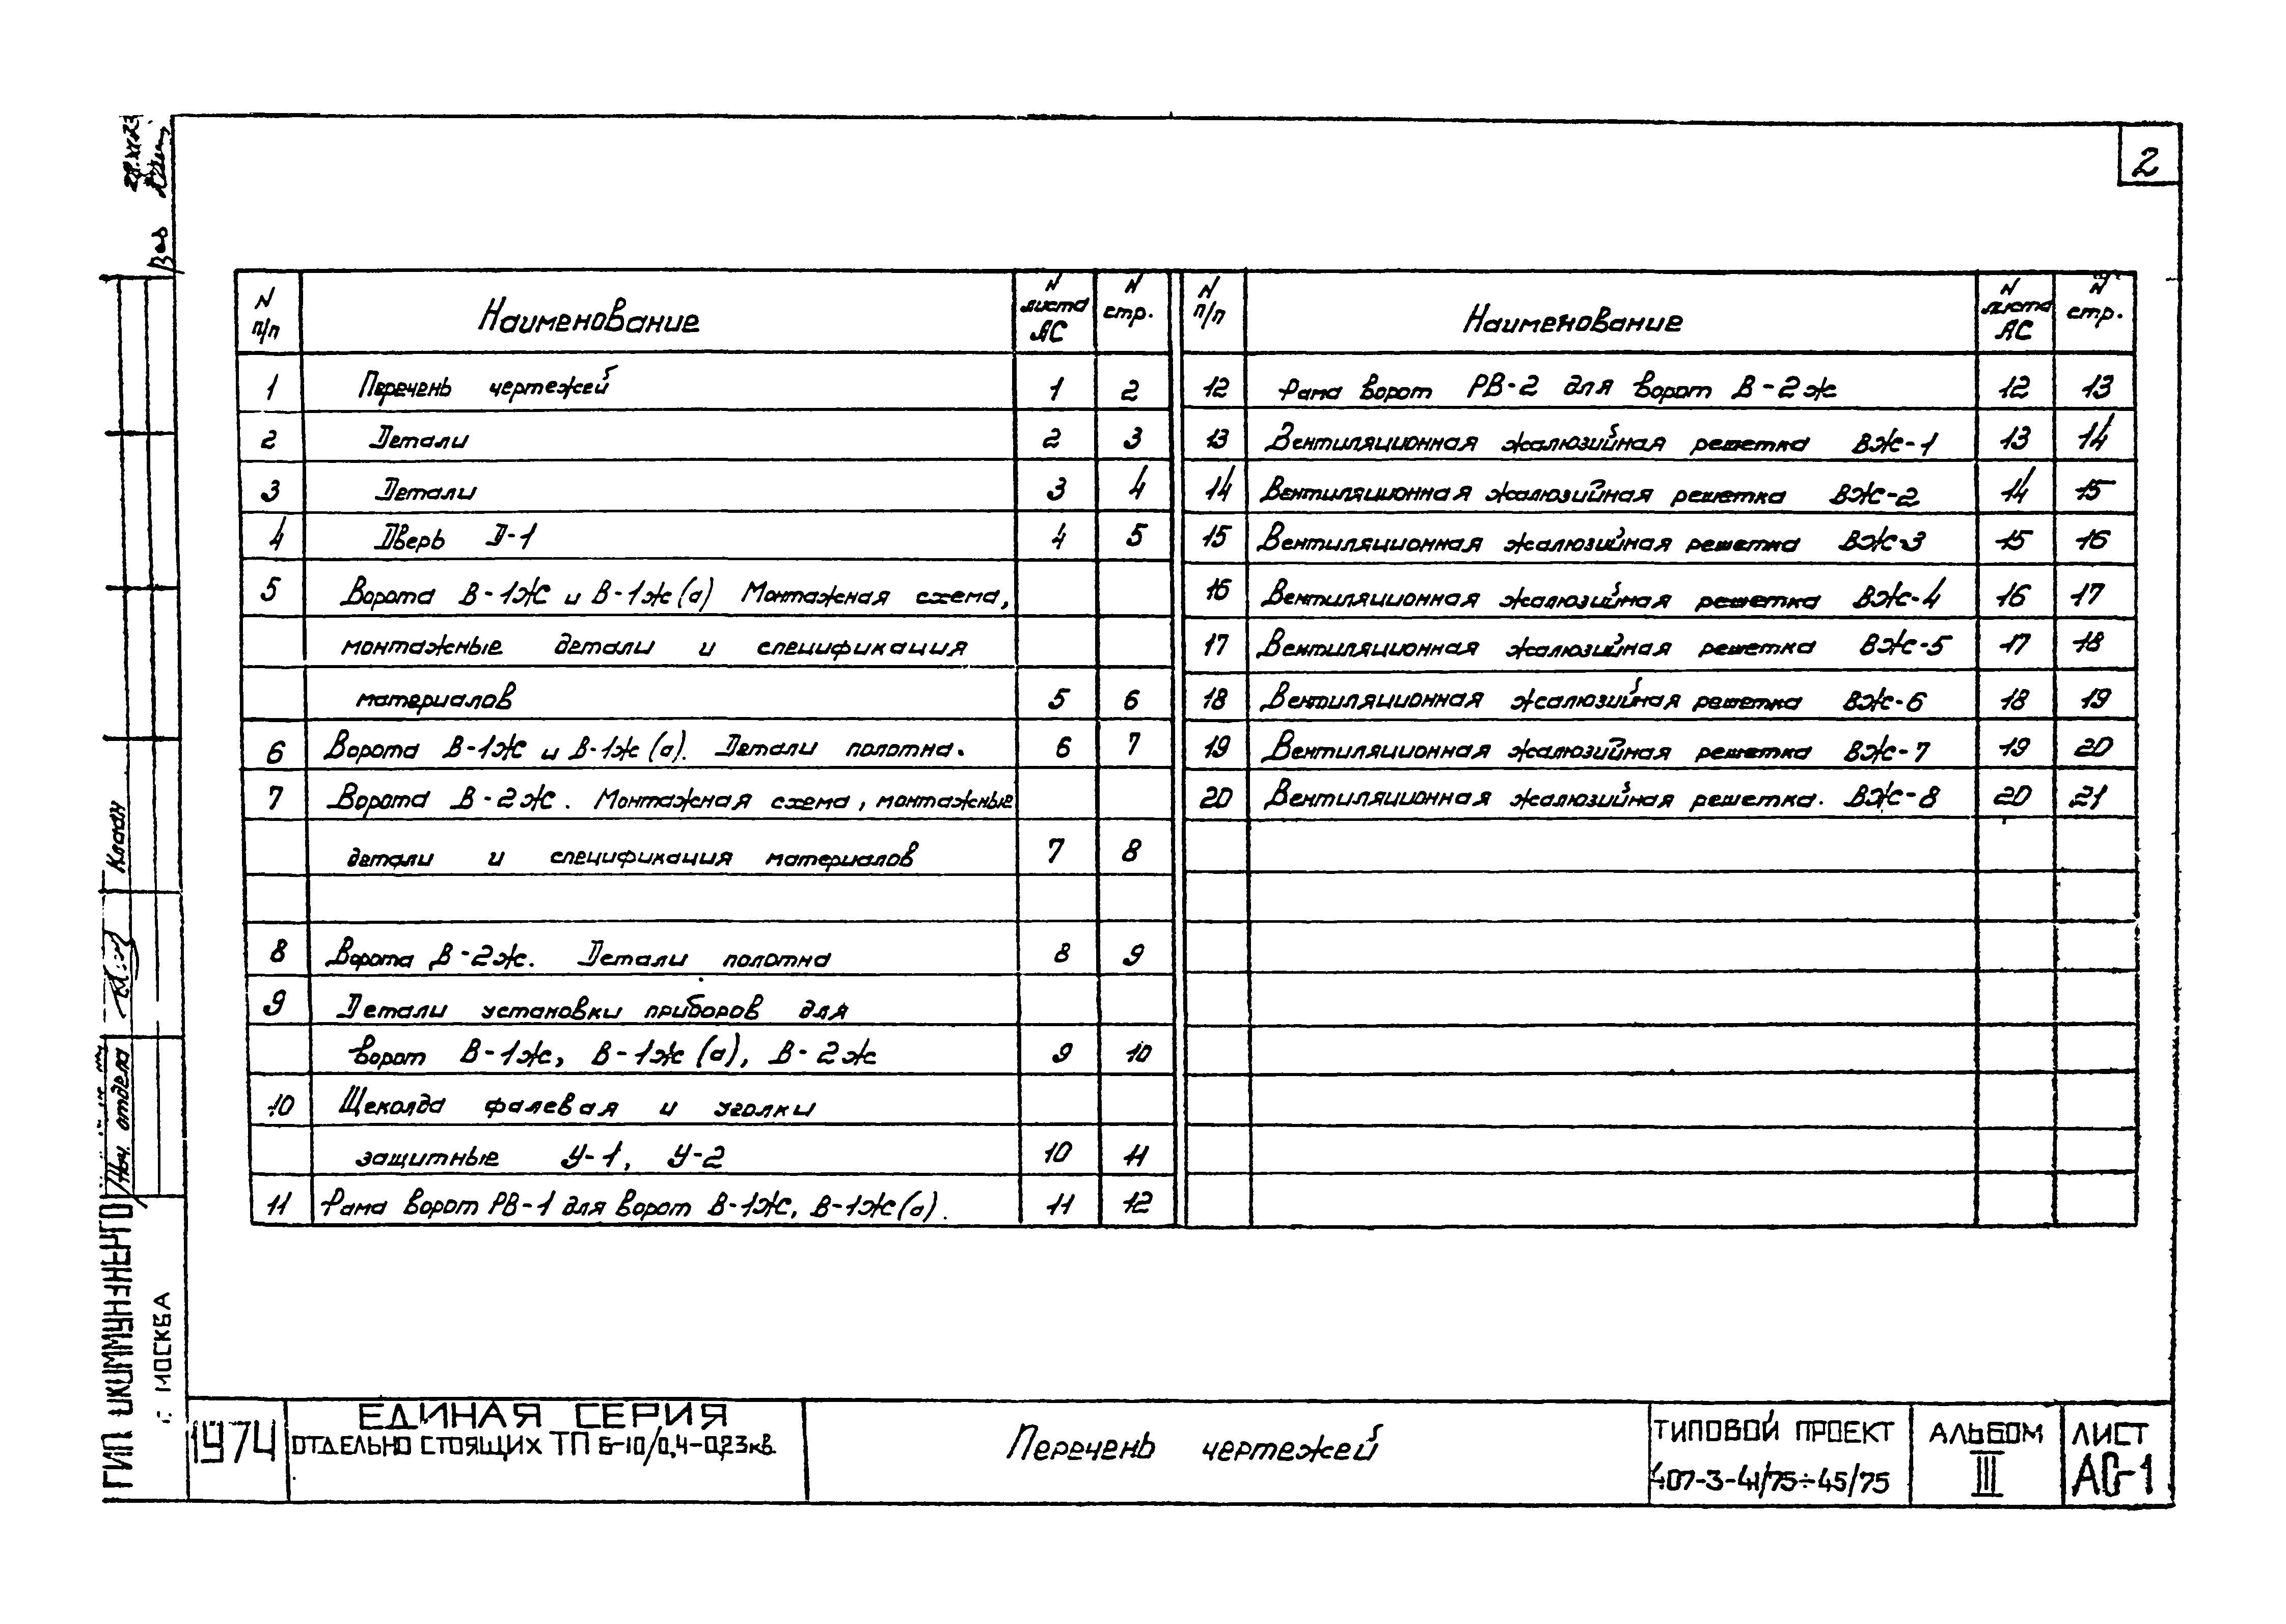 2
N п/п Наименование N листа АС N стр.
1 Перечень чертежей 1 2
2 Детали 2 3
3 Детали 3 4
4 Дверь Д-1 4 5
5 Ворота В-1Ж и В-1Ж(а) Монтажная схема,
монтажные детали и спецификация
материалов 5 6
6 Ворота В-1Ж и В-1Ж(а). Детали полотна. 6 7
7 Ворота В-2Ж. Монтажная схема, монтажные
детали и спецификация материалов 7 8
8 Ворота В-2Ж. Детали полотна 8 9
9 Детали установки приборов для
ворот В-1Ж, В-1Ж(а), В-2Ж 9 10
10 Щеколда фалевая и уголки
защитные У-1, У-2 10 11
11 Рама ворот РВ-1 для ворот В-1Ж, В-1Ж(а). 11 12
N п/п Наименование N листа АС N стр.
12 Рама ворот РВ-2 для ворот В-2Ж 12 13
13 Вентиляционная жалюзийная решетка ВЖ-1 13 14
14 Вентиляционная жалюзийная решетка ВЖ-2 14 15
15 Вентиляционная жалюзийная решетка ВЖ-3 15 16
16 Вентиляционная жалюзийная решетка ВЖ-4 16 17
17 Вентиляционная жалюзийная решетка ВЖ-5 17 18
18 Вентиляционная жалюзийная решетка ВЖ-6 18 19
19 Вентиляционная жалюзийная решетка ВЖ-7 19 20
20 Вентиляционная жалюзийная решетка. ВЖ-8 20 21
Нач. отдела Клаан
ГИП КОММУНЭНЕРГО
г. МОСКВА
1974
ЕДИНАЯ СЕРИЯ
ОТДЕЛЬНО СТОЯЩИХ ТП 6-10/0,4-0,23кв.
Перечень чертежей
ТИПОВОЙ ПРОЕКТ
407-3-41/75÷45/75
АЛЬБОМ
III
ЛИСТ
АС-1